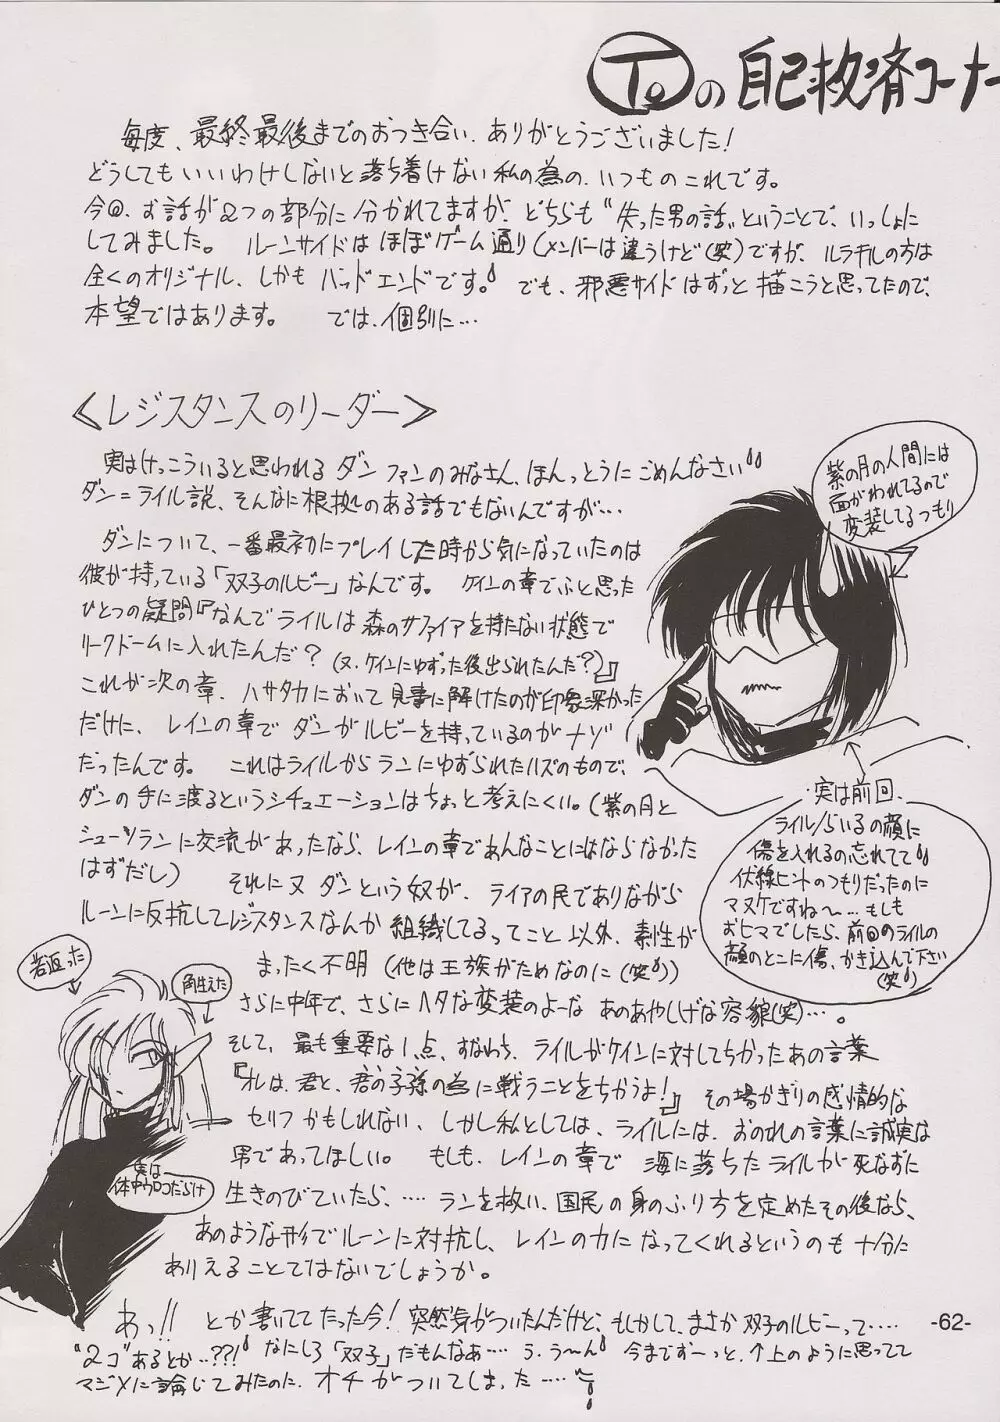 Toの自己救済コーナー
毎度、最終最後までのおつき合い、ありがとうございました!
どうしてもいいわけしないと落ち着けない私の為の、いつものこれです。
今回、お話が2つの部分に分かれてますが、どちらも"失った男の話"ということで、いっしょに
してみました。 ルーンサイドはほぼゲーム通り(メンバーは違うけど(笑)ですが、ルラギルの方は
全くのオリジナル、しかもバッドエンドです。 でも、邪悪サイドはずっと描こうと思ってたので、
本望ではあります。 では、個別に…
≪レジスタンスのリーダー≫
実はけっこういると思われるダンファンのみなさん、ほんっとうにごめんなさい
ダン=ライル説、そんなに根拠のある話でもないんですが…
ダンについて、一番最初にプレイした時から気になっていたのは
彼が持っている「双子のルビー」なんです。 ケインの章でふと思った
ひとつの疑問『なんでライルは森のサファイアを持たない状態で
リークドームに入れたんだ?(又、ケインにゆずった後出られたんだ?)』
これが次の章、ハサタカにおいて見事に解けたのが印象深かった
だけに、レインの章でダンがルビーを持っているのがナゾ
だったんです。 これはライルからランにゆずられたハズのもので、
ダンの手に渡るというシチュエーションはちょっと考えにくい。(紫の月と
シューソランに交流があったなら、レインの章であんなことにはならなかった
はずだし) それに又ダンという奴が、ライアの民でありながら
ルーンに反抗してレジスタンスなんか組織してるってこと以外、素性が
まったく不明(他は王族がためなのに(笑))
さらに中年で、さらにハタな変装のよーなあのあやしげな容貌(笑)…。
そして、最も重要な1点、すなわち、ライルがケインに対してちかったあの言葉
『オレは、君と、君の子孫の為に戦うことをちかうよ!』その場かぎりの感情的な
セリフかもしれない、しかし私としては、ライルには、おのれの言葉に誠実な
男であってほしい。 もしも、レインの章で海に落ちたライルが死なずに
生きのびていたら、…ランを救い、国民の身のふり方を定めたその後なら、
あのような形でルーンに対抗し、レインの力になってくれるというのも十分に
ありえることではないでしょうか。
あっ!! とか書いててたった今!突然気がついたんだけど、もしかして、まさか双子のルビーって……
"2コ"あるとか…??! なにしろ「双子」だもんなあ…う、う〜ん 今までずーっと、↑上のように思ってて
マジメに論じてみたのに、オチがついてしまった……
紫の月の人間には
面がわれてるので
変装してるつもり
実は前回、
ライル/らいるの顔に
傷を入れるの忘れてて
伏線ヒントのつもりだったのに
マヌケですね〜…もしも
おヒマでしたら、前回のライルの
顔のとこに傷、かき込んで下さい
(笑)
若返った
角生えた
実は
体中ウロコだらけ
-62-